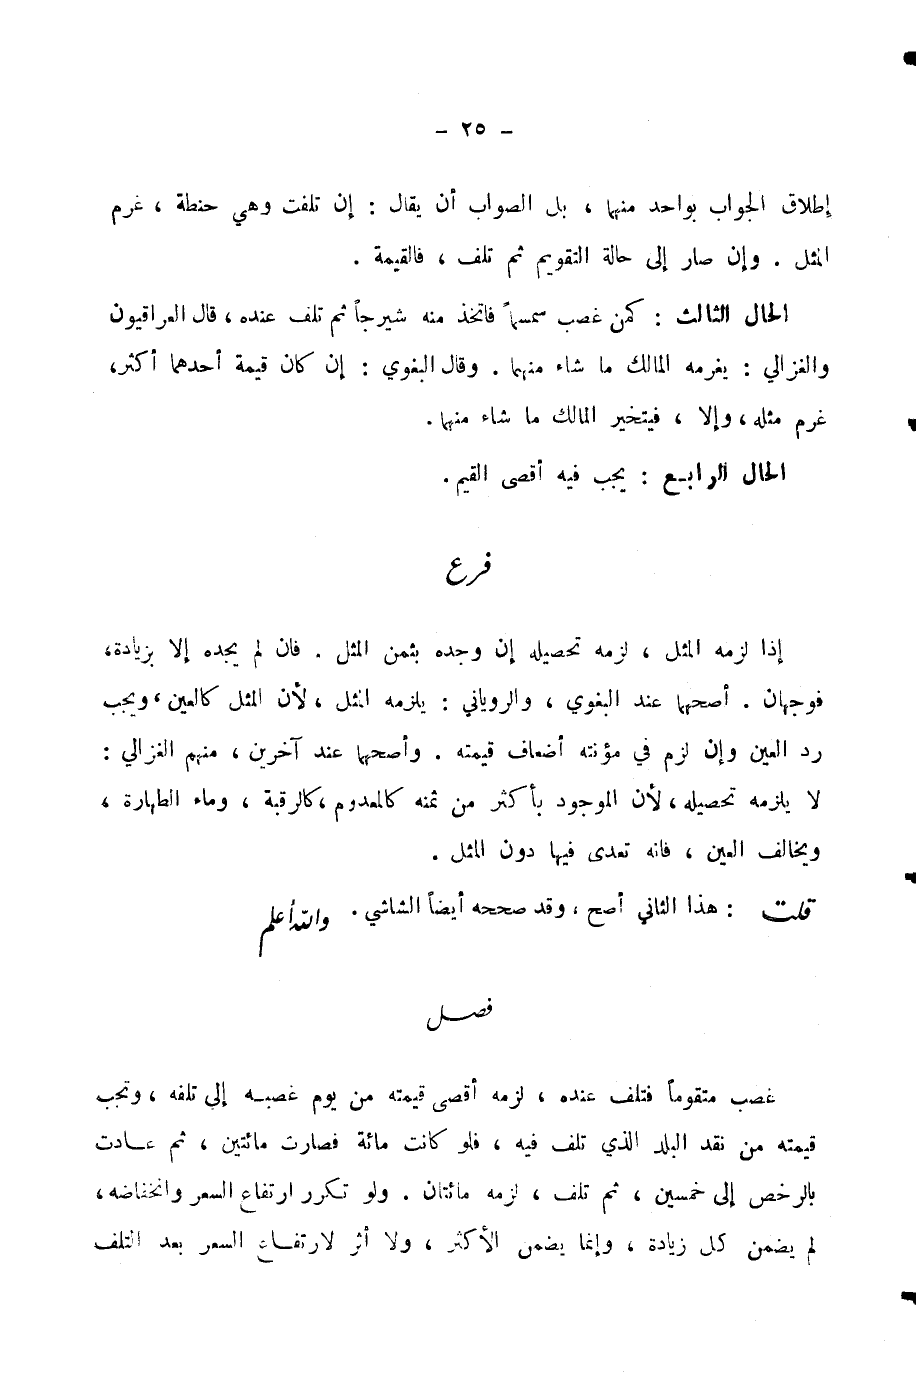 - ٢٥ -
إطلاق الجواب بواحد منهما ، بل الصواب أن يقال : إن تلفت وهي حنطة ، غرم
المثل . وإن صار إلى حالة التقويم ثم تلف ، فالقيمة .
الحال الثالث : كمن غصب سمسماً فاتخذ منه شيرجاً ثم تلف عنده ، قال العراقيون
والغزالي : يغرمه المالك ما شاء منهما . وقال البغوي : إن كان قيمة أحدهما أكثر،
غرم مثله ، وإلا ، فيتخير المالك ما شاء منهما .
الحال الرابع : يجب فيه أقصى القيم .
فرع
إذا لزمه المثل ، لزمه تحصيله إن وجده بثمن المثل . فان لم يجده إلا بزيادة،
فوجهان . أصحهما عند البغوي ، والروياني : يلزمه المثل ، لأن المثل كالعين ، ويجب
رد العين وإن لزم في مؤنته أضعاف قيمته . وأصحهما عند آخرين ، منهم الغزالي :
لا يلزمه تحصيله ، لأن الموجود بأكثر من ثمنه كالمعدوم ، كالرقبة ، وماء الطهارة ،
ويخالف العين ، فانه تعدى فيها دون المثل .
قلت : هذا الثاني أصح ، وقد صححه أيضاً الشاشي . والله أعلم
فصل
غصب متقوماً فتلف عنده ، لزمه أقصى قيمته من يوم غصبه إلى تلفه ، وتجب
قيمته من نقد البلد الذي تلف فيه ، فلو كانت مائة فصارت مائتين ، ثم عادت
بالرخص إلى خمسين ، ثم تلف ، لزمه مائتان . ولو تكرر ارتفاع السعر وانخفاضه ،
لم يضمن كل زيادة ، وإنما يضمن الأكثر ، ولا أثر لارتفاع السعر بعد التلف